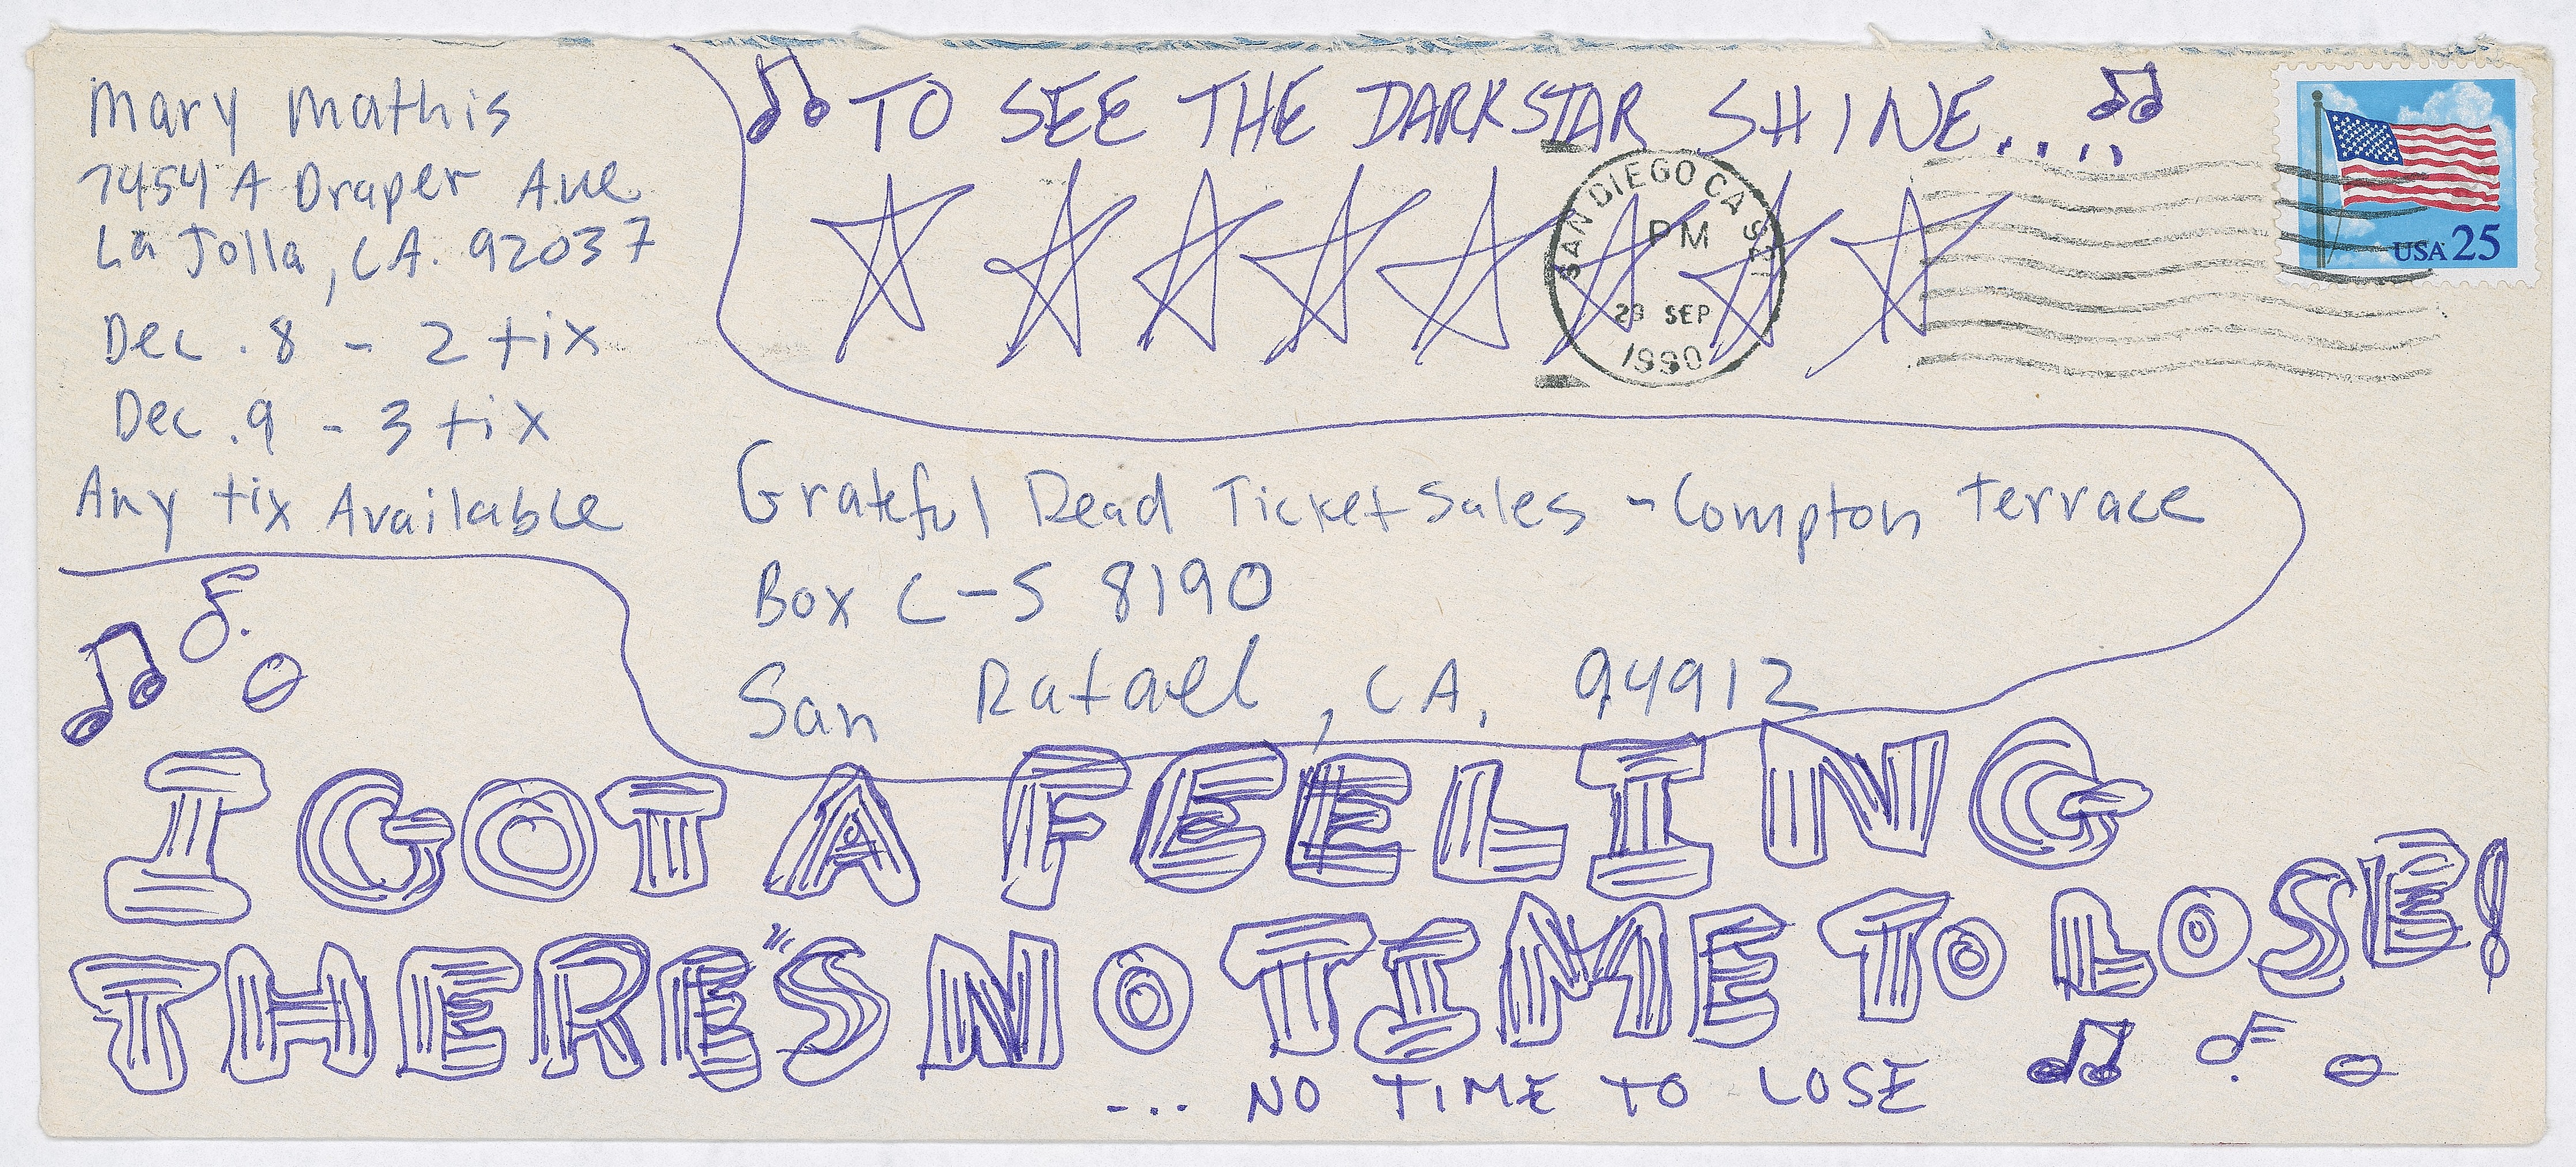 Mary Mathis
7454 A Draper Ave
La Jolla, CA. 92037
Dec. 8 - 2 tix
Dec. 9 - 3 tix
Any tix Available
TO SEE THE DARKSTAR SHINE....
SAN DIEGO CA
PM
SEP
1990
USA 25
Grateful Dead Ticket Sales - Compton Terrace
Box C-S 8190
San Rafael, CA. 94912
I GOT A FEELING
THERE'S NO TIME TO LOSE!
... NO TIME TO LOSE